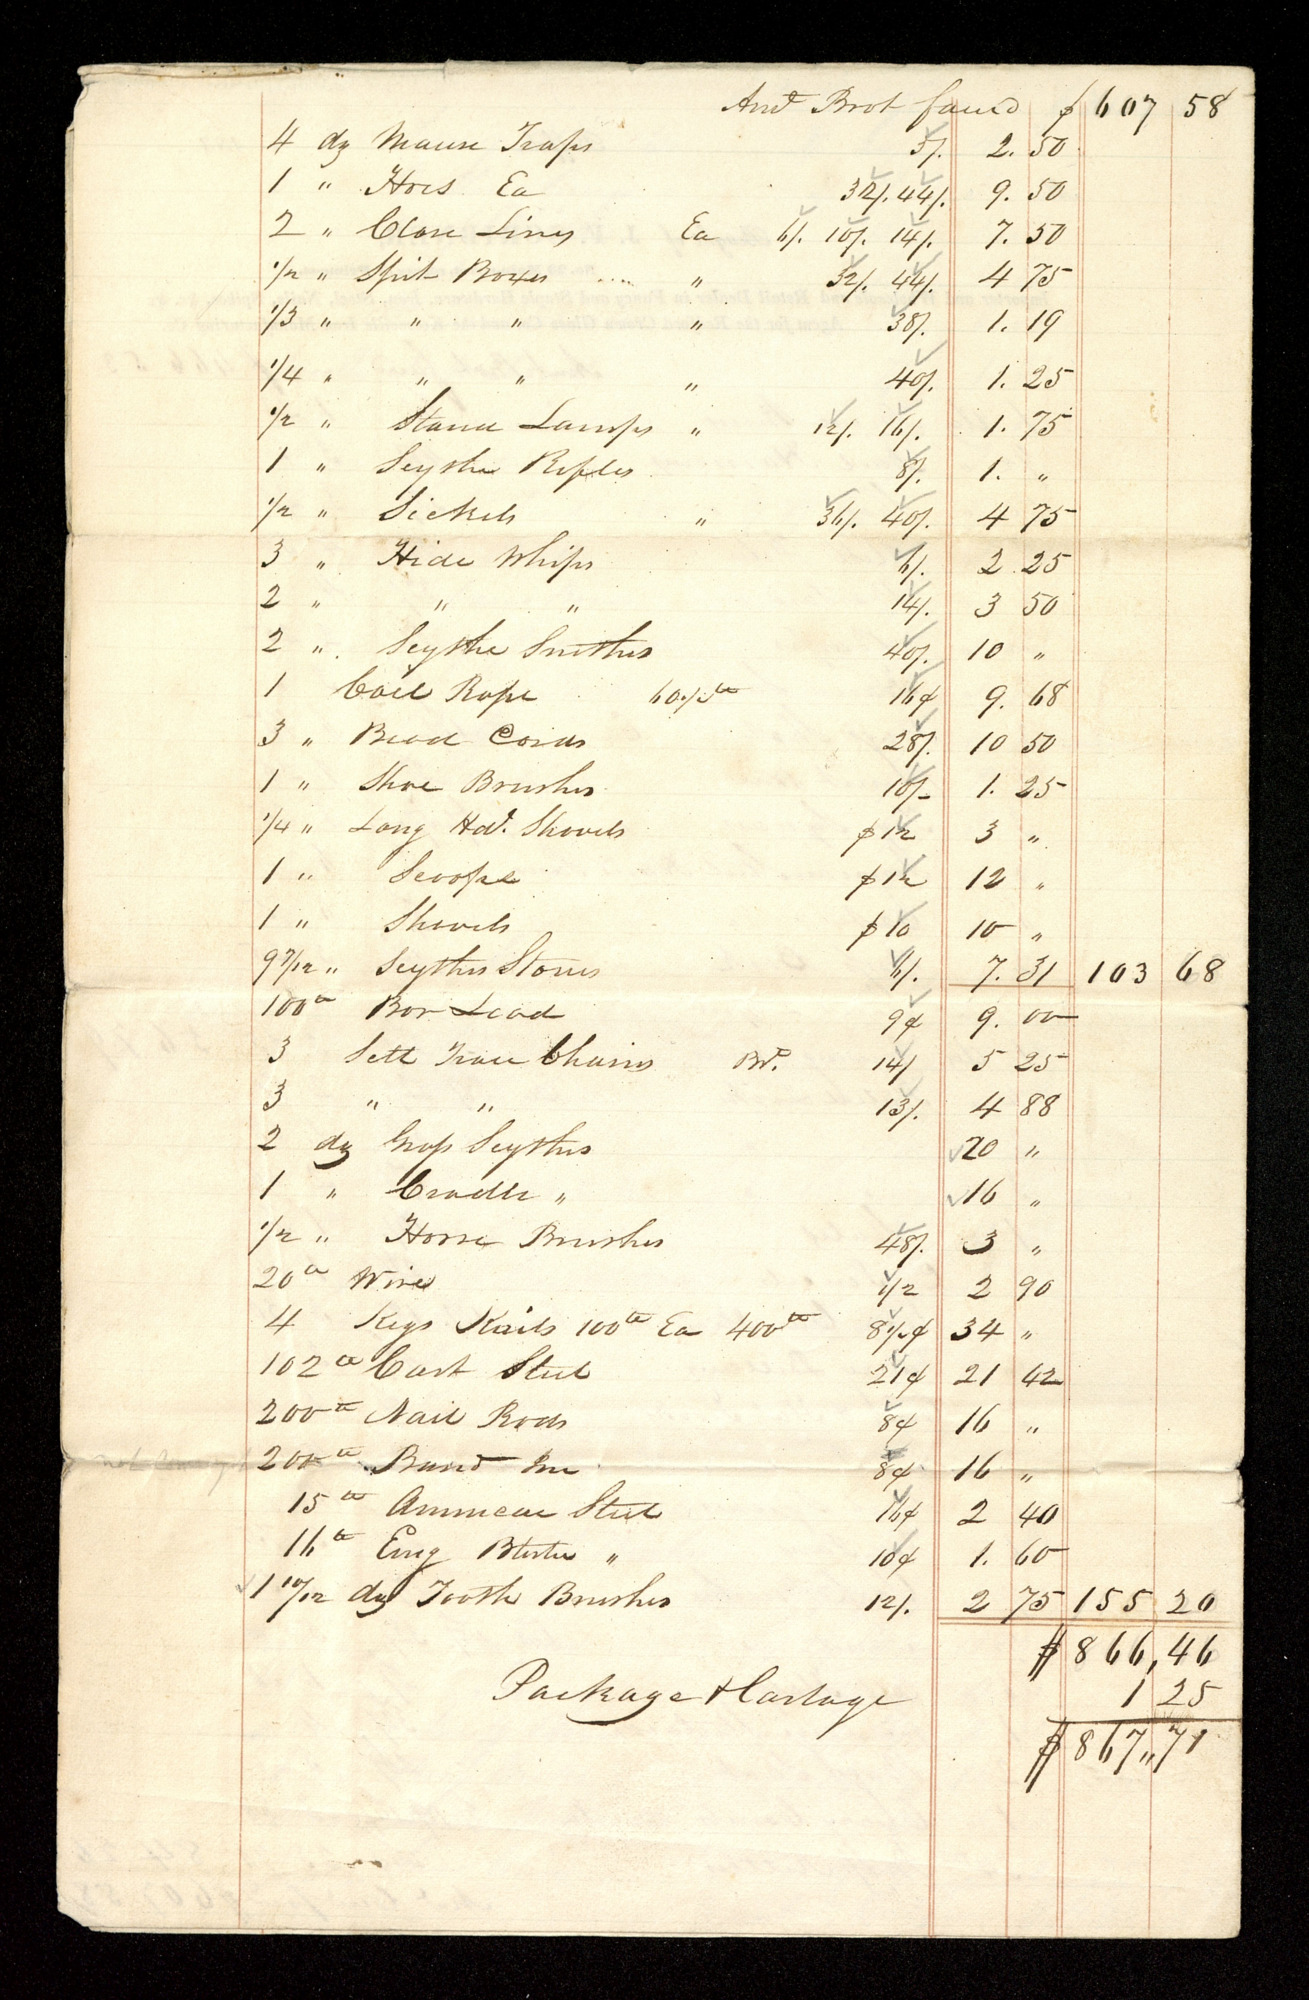 Amt Brot forwd $ 607 58
4 dz Mouse Traps 5/. 2. 50
1 " Hoes Ea 32/. 44/. 9. 50
2 " Close Lines Ea 6/. 10/. 14/. 7. 50
1/2 " Spit Boxes .... " 32/. 44/. 4 75
1/3 " " " " 38/. 1. 19
1/4 " " " " 40/. 1. 25
1/2 " Stand Lamps " 12/. 16/. 1. 75
1 " Scythe Rifles 8/. 1. "
1/2 " Sickels " 36/. 40/. 4 75
3 " Hide Whips 6/. 2 25
2 " " " 14/. 3 50
2 " Scythe Sniths 40/. 10 "
1 Coil Rope 60 1/2 lb 16¢ 9. 68
3 " Bead Cords 28/. 10 50
1 " Shoe Brushes 10/- 1. 25
1/4 " Long Hd. Shovels $12 3 "
1 " Scoops $12 12 "
1 " Shovels $10 10 "
9 9/12 " Scythes Stones 6/. 7. 31 103 68
100 lb Bar Lead 9¢ 9. 00
3 Sett Trace Chains 14/ 5 25
3 " " 13/. 4 88
2 dz Grass Scythes 20 "
1 " Cradle " 16 "
1/2 " Horse Brushes 48/. 3 "
20 lb Wire 1/2 2 90
4 Kegs Nails 100 lb Ea 400 lb 8 1/2¢ 34 "
102 lb Cast Steel 21¢ 21 42
200 lb Nail Rods 8¢ 16 "
200 lb Band Irn 8¢ 16 "
15 lb American Steel 16¢ 2 40
16 lb Eng Blister " 10¢ 1. 60
1 10/12 dz Tooth Brushes 12/. 2 75 155 20
$ 866,46
Package & Cartage 1 25
$ 867,,71